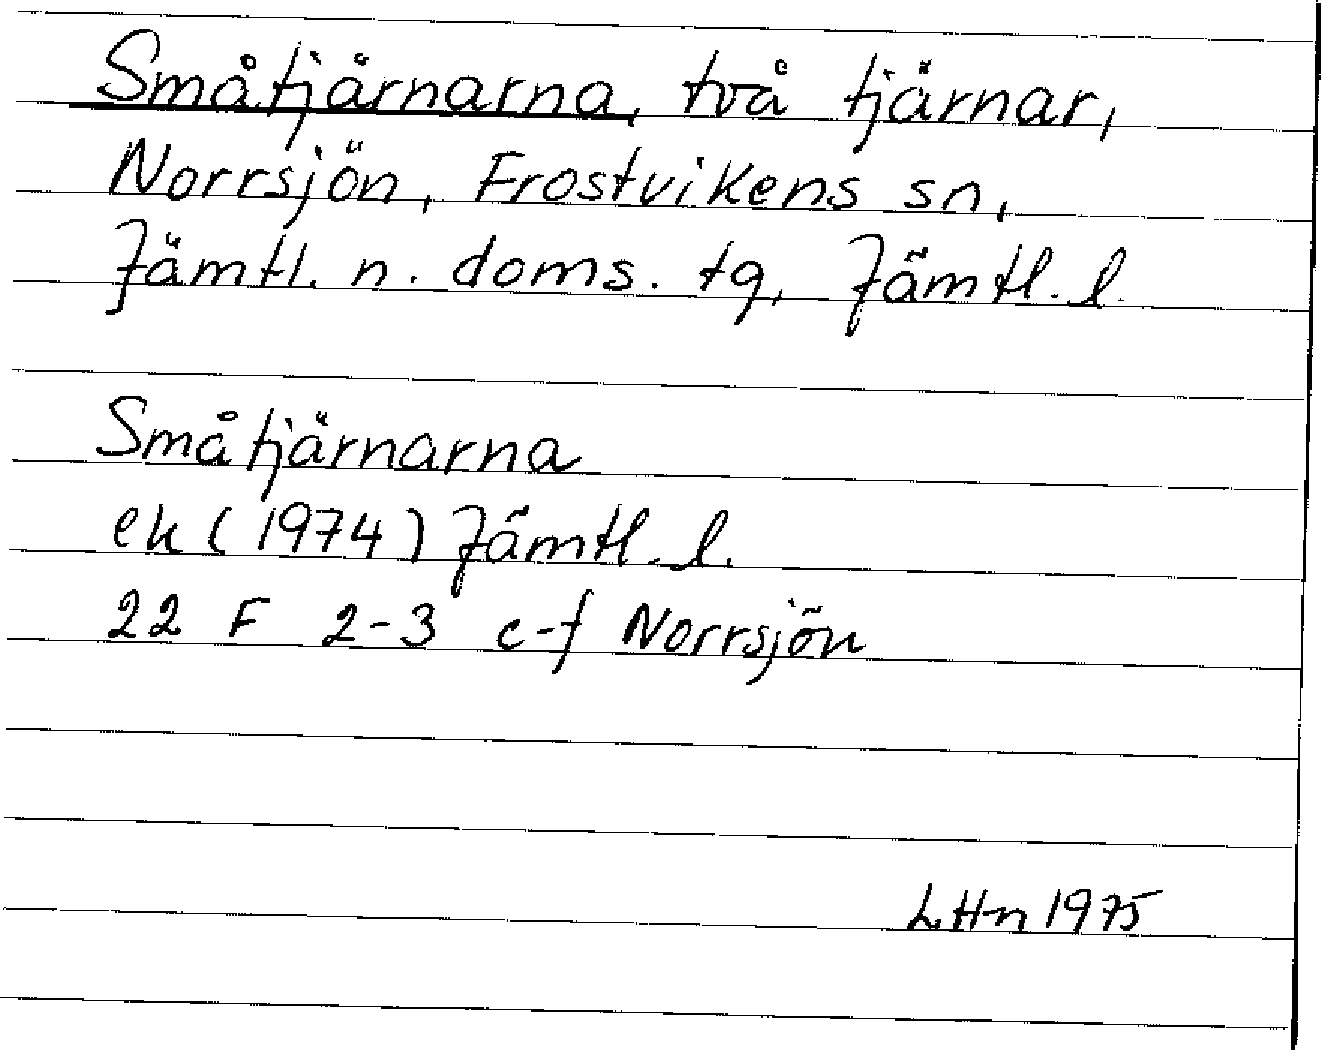 Småtjärnarna, två tjärnar,
Norrsjön, Frostvikens sn,
Jämtl. n. doms. tg, Jämtl. l.
Småtjärnarna
ek (1974) Jämtl. l.
22 F 2-3 c-f Norrsjön
LHn 1975